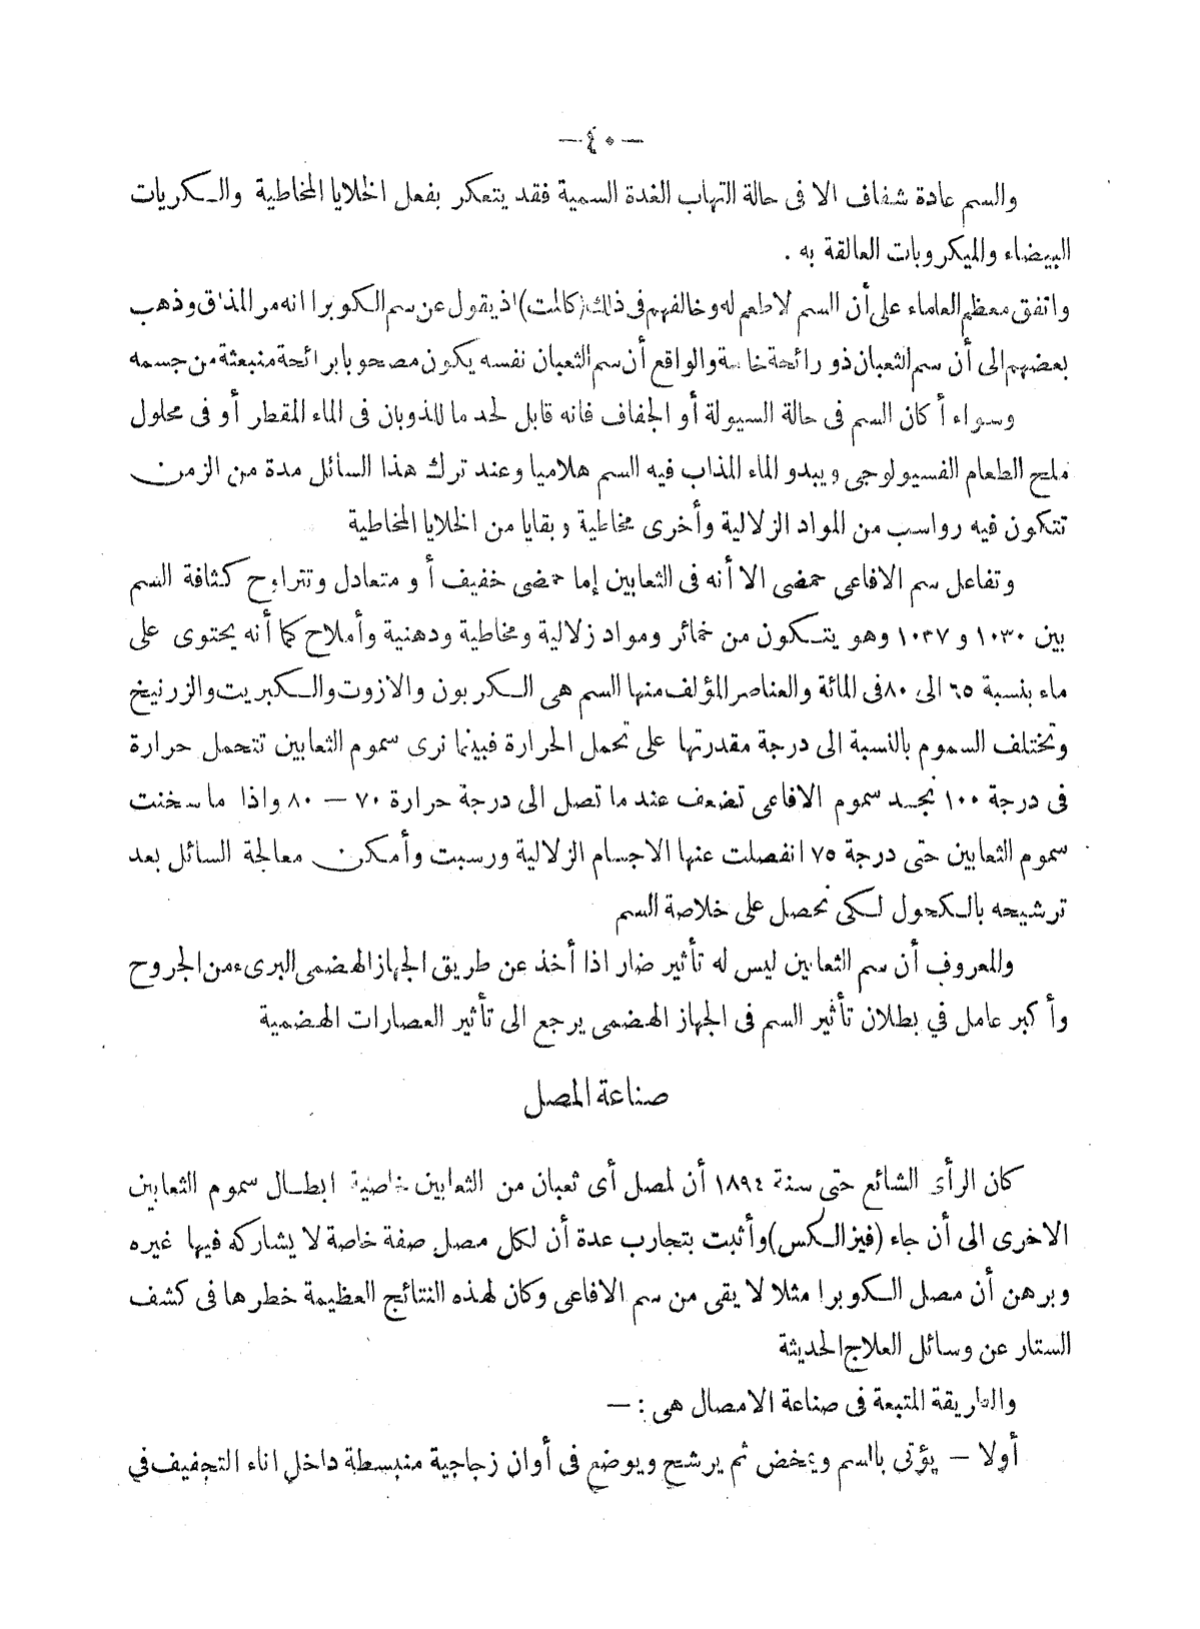 — ٤٠ —
والسم عادة شفاف الا فى حالة التهاب الغدة السمية فقد يتعكر بفعل الخلايا المخاطية والكريات
البيضاء والميكروبات العالقة به .
واتفق معظم العلماء على أن السم لا طعم له وخالفهم فى ذلك (كالمت) اذ يقول عن سم الكوبرا انه مر المذاق وذهب
بعضهم الى أن سم الثعبان ذو رائحة خاصة والواقع أن سم الثعبان نفسه يكون مصحوبا برائحة منبعثة من جسمه
وسواء أكان السم فى حالة السيولة أو الجفاف فانه قابل لحد ما للذوبان فى الماء المقطر أو فى محلول
ملح الطعام الفسيولوجى ويبدو الماء المذاب فيه السم هلاميا وعند ترك هذا السائل مدة من الزمن
تتكون فيه رواسب من المواد الزلالية وأخرى مخاطية وبقايا من الخلايا المخاطية
وتفاعل سم الافاعى حمضى الا أنه فى الثعابين إما حمضى خفيف أو متعادل وتتراوح كثافة السم
بين ١٠٣٠ و ١٠٣٧ وهو يتكون من خمائر ومواد زلالية ومخاطية ودهنية وأملاح كما أنه يحتوى على
ماء بنسبة ٦٥ الى ٨٠ فى المائة والعناصر المؤلف منها السم هى الكربون والازوت والكبريت والزرنيخ
وتختلف السموم بالنسبة الى درجة مقدرتها على تحمل الحرارة فبينما نرى سموم الثعابين تتحمل حرارة
فى درجة ١٠٠ نجد سموم الافاعى تضعف عند ما تصل الى درجة حرارة ٧٠ — ٨٠ واذا ما سخنت
سموم الثعابين حتى درجة ٧٥ انفصلت عنها الاجسام الزلالية ورسبت وأمكن معالجة السائل بعد
ترشيحه بالكحول لكى نحصل على خلاصة السم
والمعروف أن سم الثعابين ليس له تأثير ضار اذا أخذ عن طريق الجهاز الهضمى البرىء من الجروح
وأكبر عامل في بطلان تأثير السم فى الجهاز الهضمى يرجع الى تأثير العصارات الهضمية
صناعة المصل
كان الرأى الشائع حتى سنة ١٨٩٤ أن لمصل أى ثعبان من الثعابين خاصية ابطال سموم الثعابين
الاخرى الى أن جاء (فيزالكس) وأثبت بتجارب عدة أن لكل مصل صفة خاصة لا يشاركه فيها غيره
وبرهن أن مصل الكوبرا مثلا لا يقى من سم الافاعى وكان لهذه النتائج العظيمة خطرها فى كشف
الستار عن وسائل العلاج الحديثة
والطريقة المتبعة فى صناعة الامصال هى : —
أولا — يؤتى بالسم ويمخض ثم يرشح ويوضع فى أوان زجاجية منبسطة داخل اناء التجفيف في